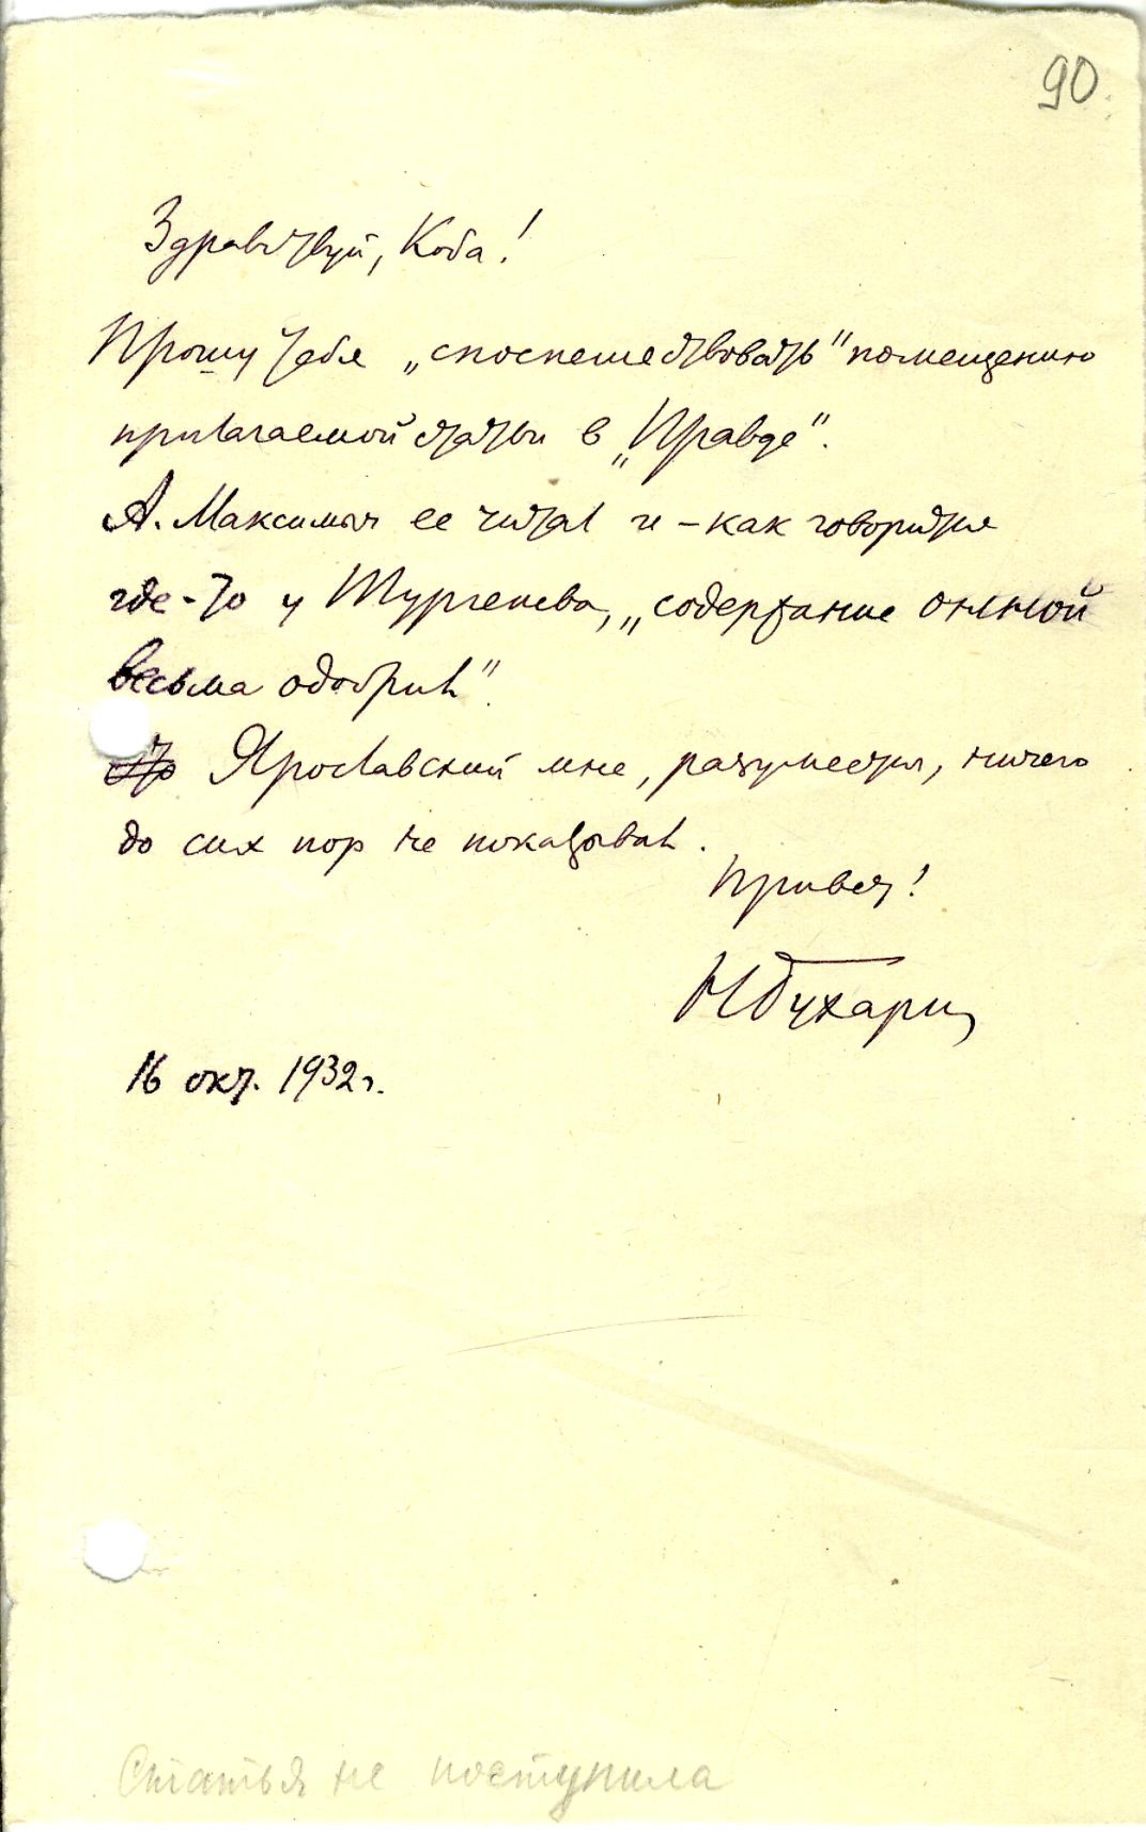 90
Здравствуй, Коба!
Прошу тебя „споспешествовать" помещению
прилагаемой статьи в „Правде".
А. Максимыч ее читал и – как говорится
где-то у Тургенева, „содержание онной
весьма одобрил".
Ярославский мне, разумеется, ничего
до сих пор не показывал.
Привет!
НБухарин
16 окт. 1932 г.
Статья не поступила